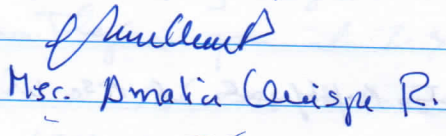 Msc. Amalia Quispe R.